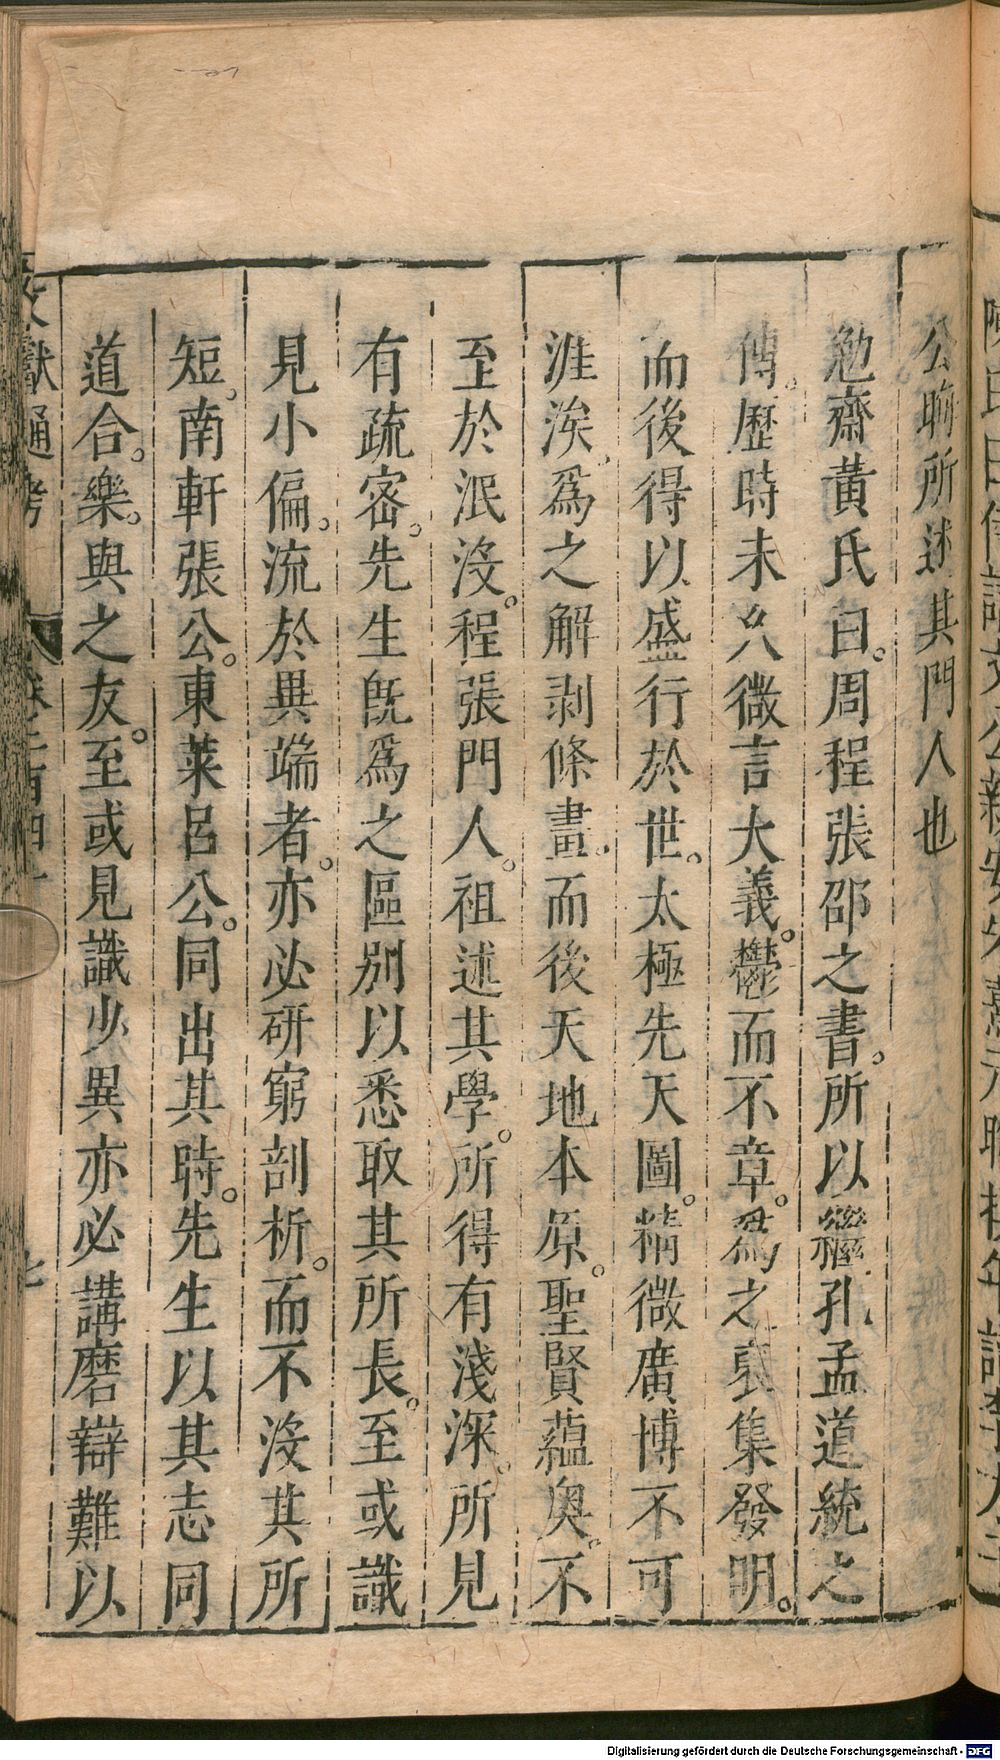 公晦所述其門人也
勉齋黃氏曰。周程張邵之書。所以繼孔孟道統之
傳。歷時未久微言大義。鬱而不章。爲之裒集發明。
而後得以盛行於世。太極先天圖。精微廣博不可
涯涘。爲之解剥條畫。而後天地本原。聖賢蘊奥。不
至於泯沒。程張門人。祖述其學。所得有淺深。所見
有疏密。先生旣爲之區别以悉取其所長。至或識
見小偏。流於異端者。亦必硏窮剖析。而不沒其所
短。南軒張公。東萊呂公。同出其時。先生以其志同
道合。樂。與之友。至或見識少異亦必講磨辯難以
文獻通考
七
Digitalisierung gefördert durch die Deutsche Forschungsgemeinschaft - DFG